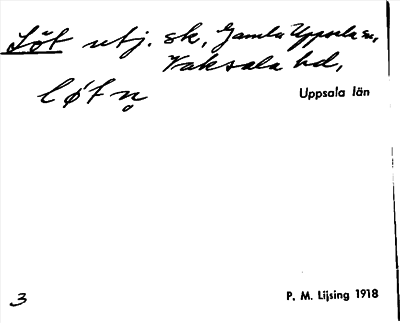 Löt utj. sk, Gamla Uppsala sn,
Vaksala hd,
løtn̥
Uppsala län
3
P. M. Lijsing 1918